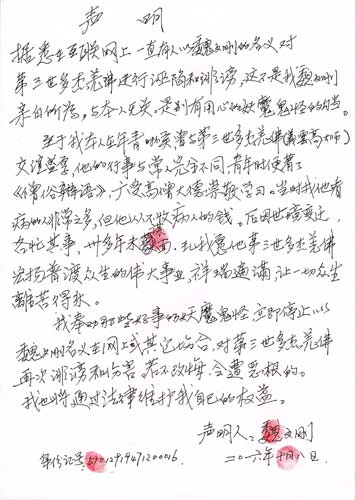 声 明
据悉在互联网上一直有人以魏文刚的名义对
第三世多杰羌佛进行诬陷和诽谤，这不是我魏文刚
亲自的所为，与本人无关，是别有用心的妖魔鬼怪的勾当。
至于我本人在年青时候曾与第三世多杰羌佛(義雲高大師)
交谊甚享，他的行事与常人完全不同，青年时便著了
《僧俗辩语》，广受高僧大德崇敬学习。当时找他看
病的人非常之多，但他从不收病人的钱。后因世境变迁，
各忙其事，卅多年未蒙面。现我愿他第三世多杰羌佛
宏扬普渡众生的伟大事业，祥瑞遍满，让一切众生
離苦得乐。
我奉劝那些好事的妖魔鬼怪，立即停止以
魏文刚名义在网上或其它场合，对第三世多杰羌佛
再次诽谤和伤害。若不改悔，会遭恶报的。
我也将通过法律维护我自己的权益。
声明人：魏文刚
身份证号：51012919471200016 二〇一六年十月八日